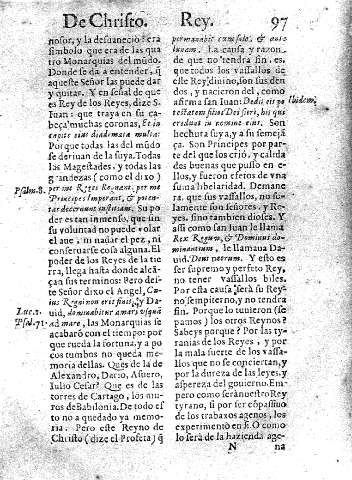 De Christo.
Rey.
97
nosor, y la desuaneciò? era
simbolo que era de las qua
tro Monarquias del mũdo.
Donde se da a entender, q̃
aqueste Señor las puede dar
y quitar. Y en señal de que
es Rey de los Reyes, dize S.
Iuan: que traya en su ca-
beça muchas coronas, Et in
capite eius diademata multa:
Porque todas las del mũdo
se deriuan de la suya. Todas
las Magestades, y todas las
grandezas (como el dixo)
Psalm. 8.
per me Reges Regnant, per me
Principes Imperant, & poten-
tat decernunt iustitiam. Su po
der es tan inmenso, que sin
su voluntad no puede volar
el aue, ni nadar el pez, ni
conseruarse cosa alguna. El
poder de los Reyes de la tie
rra, llega hasta donde alcã-
çan sus terminos: Pero des-
te Señor dixo el Angel, Cu-
Luc. 1.
ius Regni non erit finis, y Da
Psal. 71.
uid, dominabitur a mari vsquè
ad mare, las Monarquias se
acabarõ con el tiempo: por
que rueda la fortuna, y a po
cos tumbos no queda me
moria dellas. Quès de la de
Alexandro, Dario, Asuero,
Iulio Cesar? Que es de las
torres de Cartago, los mu-
ros de Babilonia. De todo es
to no a quedado ya memo-
ria. Pero este Reyno de
Christo (dize el Profeta) q̃
lunam. La causa y razon
de que no tendrà fin, es,
que todos los vassallos de
este Rey diuino, son sus den
dos, y nacieron del, como
afirma san Iuan: Dedit eis po
Ibidem
testatem filios Dei fieri, his qui
credunt in nomine eius. Son
hechura suya, y a su semejã
ça. Son Principes por par-
te del que los criò, y calida
des buenas que puso en e-
llos, y fueron efetos de vna
su liberalidad. Demane
ra, que sus vassallos, no so-
lamente son señores, y Re-
yes, sino tambien dioses. Y
assi como san Iuan le llama
Rex Regum, & Dominus do-
minantum, le llamana Da-
uid, Deus Deorum. Y esto es
ser supremo y perfeto Rey,
no tener vassallos biles.
Por esta causa serà su Rey
no sempiterno, y no tendra
fin. Porque lo tuuieron (se
pamos) los otros Reynos?
Sabeys porque? Por las ty-
ranias de los Reyes, y por
la mala suerte de los vassa-
llos que no se conciertan, y
por la dureza de las leyes, y
aspereza del gouierno. Em-
pero como serà nuestro Rey
tyrano, si por ser cõpassiuo
de los trabaxos agenos, los
experimentò en si. O como
lo serà de la hazienda age-
N
na